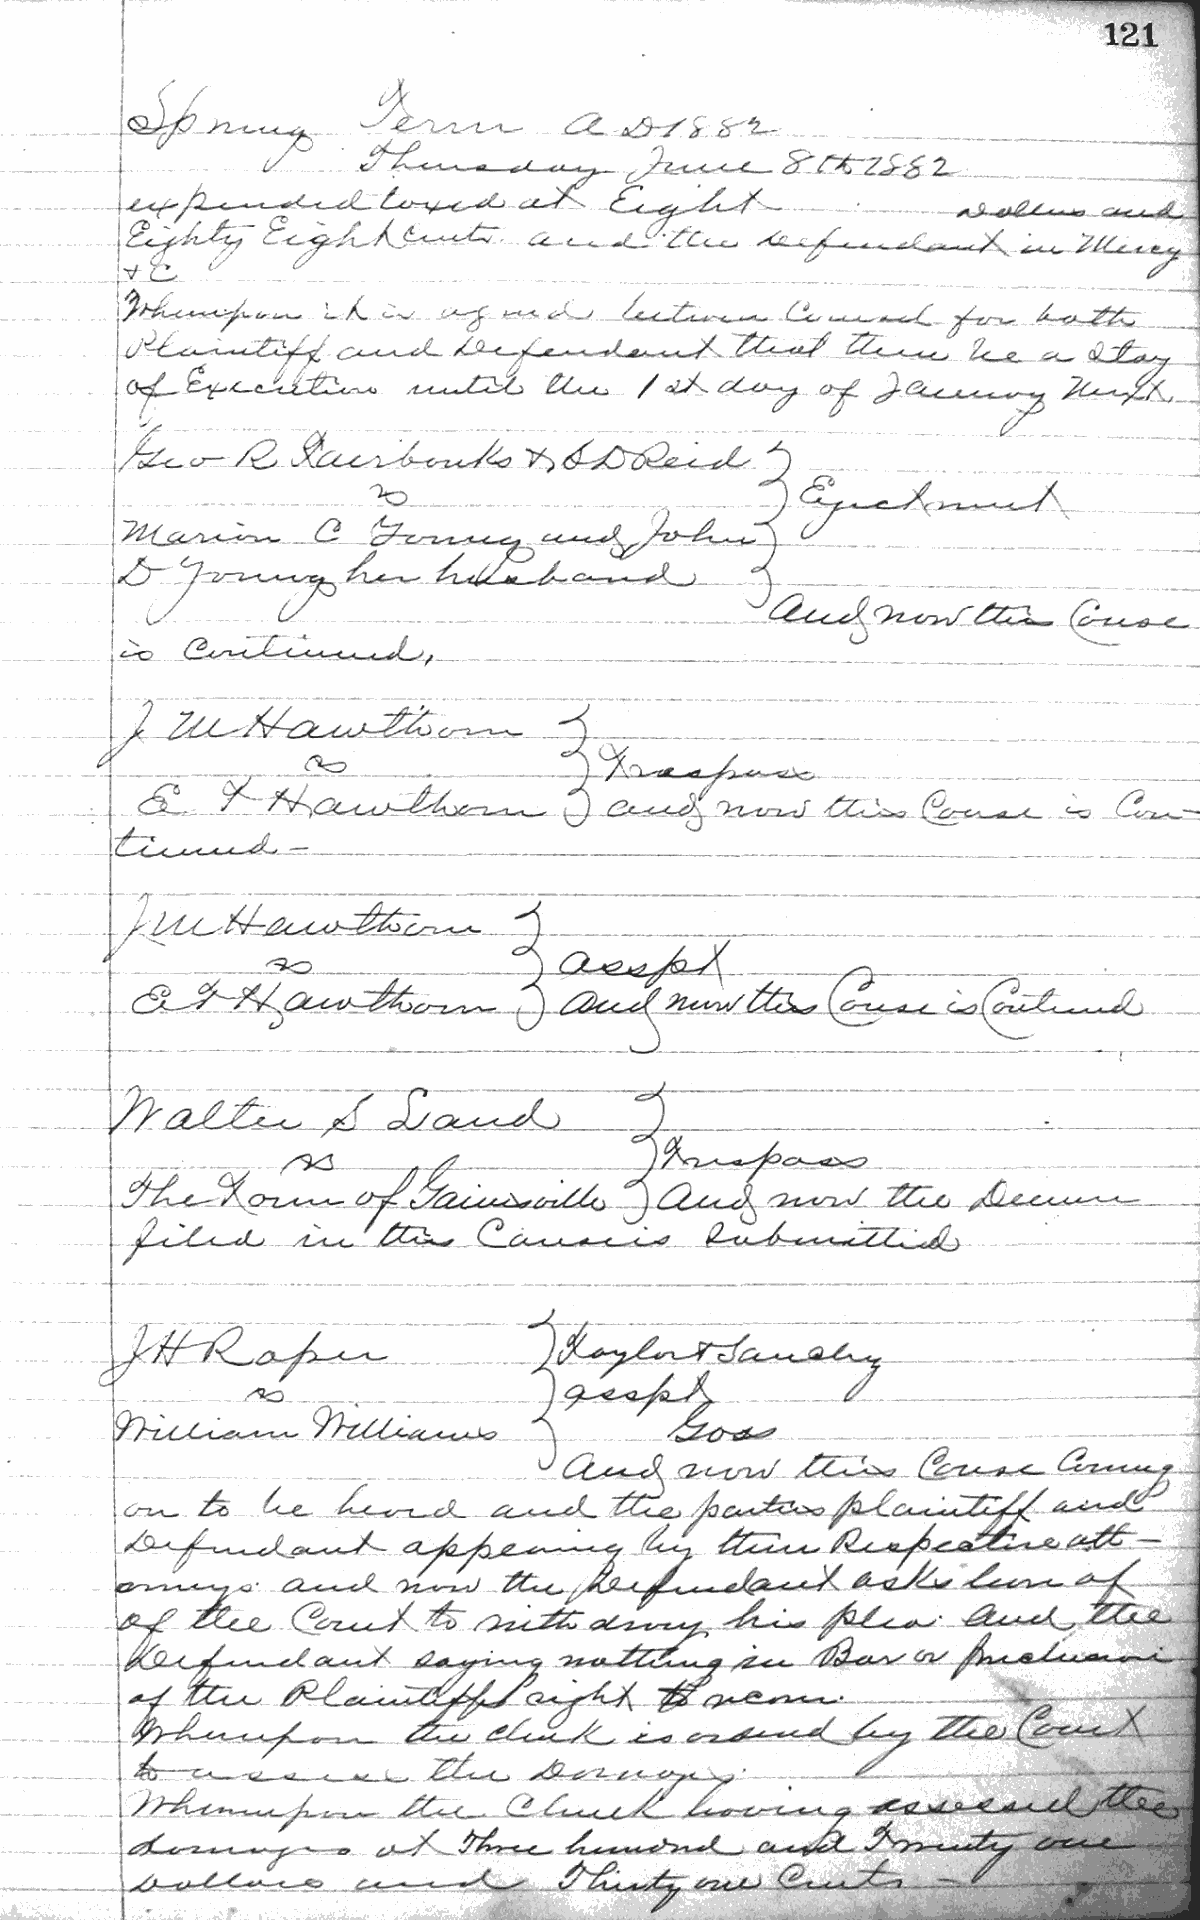 121
Spring Term A D 1882
Thursday June 8th 1882
expended taxed at Eight Dollars and
Eighty Eight cents and the Defendant in Mercy
& C
Whereupon it is agreed between Counsel for both
Plaintiff and Defendant that there be a Stay
of Execution until the 1st day of January Next.
Geo R Fairbanks & S D Reid
vs
Ejectment
Marion C Young and John
D Young her husband
And now this Cause
is Continued,
J M Hawthorn
vs
Trespass
E T Hawthorn And now this Cause is Con-
tinued -
J M Hawthorn
vs Asspt
E T Hawthorn And now this Cause is Contined
Walter S Land
vs Trespass
The Town of Gainesville And now the Demurrer
filed in this Cause is Submitted
J H Roper Taylor & Sanchez
vs asspt
William Williams Goss
And now this Cause Coming
on to be heard and the parties plaintiff and
Defendant appearing by their Respective att-
orneys and now the Defendant asks leave of
of the Court to withdraw his plea. And the
Defendant saying nothing in Bar or preclusion
of the Plaintiffs right to recover.
Whereupon the clerk is ordered by the Court
to assess the Damages.
Whereupon the Clerk having assessed the
damages at Three hundred and Twenty one
Dollars and Thirty one Cents -